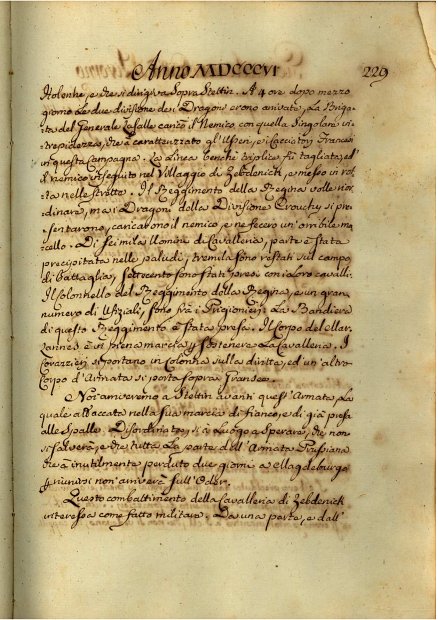 Anno MDCCCVI
229
Holenhe, e che si dirigeva Sopra Stettin. A 4 ore dopo mezzo
giorno Le due divisione dei Dragoni erono arrivate, La Briga-
ta del Generale La Salle caricò il Nemico con quella Singolare in-
trepidezza, che à caratterizzato gl'Usseri, e i Cacciatori Francesi
in questa Campagna. La Linea benchè triplice fù tagliata, ed
il nemico inseguito nel Villaggio di Zebdenick, e messo in rot-
ta nelle strette. Il Reggimento della Regina volle rior-
dinare, ma i Dragoni della Divisione Grouchy si pre-
sentarono, caricarono il nemico, e ne fecero un orribile ma-
cello. Di sei mila Uomini di Cavalleria, parte è stata
precipitata nelle paludi, tremila sono restati sul campo
di battaglia, Settecento sono stati presi con i loro cavalli.
Il Colonnello del Reggimento della Regina, e un gran
numero di Ufiziali, sono frà i Prigionieri. La Bandiera
di questo Reggimento è stata presa. Il Corpo del Mar.
Lannes è in piena marcia p sostenere La Cavalleria. I
Corazzieri si portano in Colonna sulla diritta, ed un' altro
Corpo d'Armata si porta sopra Gransee.
Noi arriveremo a Stettin avanti quest' Armata, La
quale attaccata nella sua marcia di fianco, è di già presa
alle Spalle. Disordinata, si à Luogo a Sperare, che non
si Salverà, e che tutta La parte dell' Armata Prussiana
che à inutilmente perduto due giorni a Magdeburgo
p riunirsi non arriverà sull' Oder.
Questo combattimento della Cavalleria di Zebdenick
interessa come fatto militare. Da una parte, e dall'